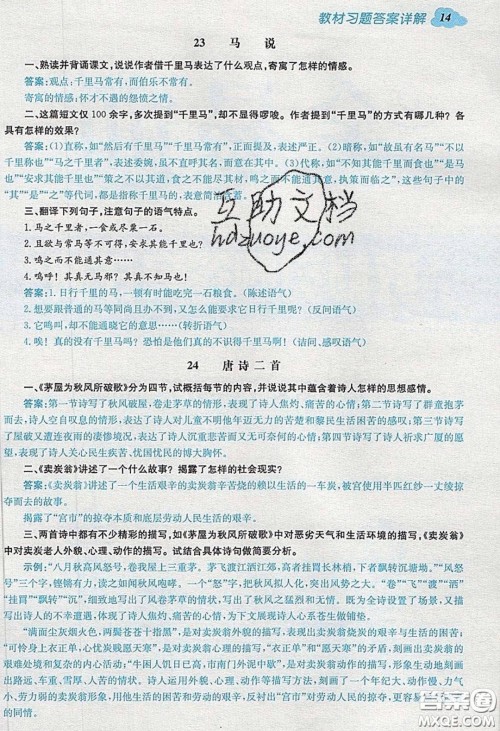 教材习题答案详解 14
23 马 说
一、熟读并背诵课文,说说作者借千里马表达了什么观点,寄寓了怎样的情感。
答案:观点:千里马常有,而伯乐不常有。
寄寓的情感:怀才不遇的怨愤之情。
二、这篇短文仅 100 余字,多次提到“千里马”,却不显得啰唆。作者提到“千里马”的方式有哪几种?各
具有怎样的效果?
答案:(1)直称,如“然后有千里马”“千里马常有”,正面提出,表述严正。(2)暗称,如“故虽有名马”“不以
千里称也”“马之千里者”,表述委婉,虽不直言,却可引人深思。(3)代称,如“是马也,虽有千里之能”“食马者
也”“安求其能千里也”“策之不以其道,食之不能尽其材,鸣之而不能通其意,执策而临之”,这些句子中的
“其”“是”“之”等代词,都是指代千里马,表意简洁
三、翻译下列句子,注意句子的语气特点。
1. 马之千里者,一食或尽粟一石。
2. 且欲与常马等不可得,安求其能千里也?
3. 鸣之而不能通其意……
4. 呜呼!其真无马邪?其真不知马也!
答案:1. 日行千里的马,一顿有时能吃完一石粮食。(陈述语气)
2. 想要跟普通的马等同尚且办不到,又怎么能要求它日行千里呢?(反问语气)
3. 它鸣叫,却不能通晓它的意思……(转折语气)
4. 唉!真的没有千里马吗?恐怕是真的不识千里马吧!(诘问、感叹语气)
24 唐诗二首
一、《茅屋为秋风所破歌》分为四节,试概括每节的内容,并说说其中蕴含着诗人怎样的思想感情。
答案:第一节诗写了秋风破屋、卷走茅草的情形,表现了诗人焦灼、痛苦的心情;第二节诗写了群童抱茅
而去,诗人空自叹息的情景,表达了诗人对儿童不明世事的无奈和因年老体衰而痛苦的心情;第三节诗写
了屋破又遭连夜雨的凄惨境况,表达了诗人沉重悲苦而又艰难无奈的心情;第四节诗写了诗人祈求广厦的愿
望,表现了诗人关心民生疾苦、忧国忧民的博大胸怀。
二、《卖炭翁》讲述了一个什么故事?揭露了怎样的社会现实?
答案:《卖炭翁》讲述了一个生活艰辛的卖炭翁辛苦烧的赖以生活的一车炭,被宫使用半匹红纱一丈绫掠
夺而去的故事。
揭露了“宫市”的掠夺本质和底层劳动人民生活的艰辛。
三、两首诗中都有不少精彩的描写,如《茅屋为秋风所破歌》中对恶劣天气和生活环境的描写,《卖炭翁》
中对卖炭老人外貌、心理、动作的描写。试结合具体诗句做简要分析。
示例:“八月秋高风怒号,卷我屋上三重茅。茅飞渡江洒江郊,高者挂罥长林梢,下者飘转沉塘坳。”“风怒
号”三个字,铿锵有力,读之如闻秋风咆哮。一个“怒”字,把秋风拟人化,富有浓烈的感情色彩。“卷”“飞”“渡”“洒”
“挂罥”“飘转”,一个接一个的动态描写,写出了秋风之猛烈和无情。全诗开篇通过对秋风的描写渲染了
一种阴暗、愁惨的氛围,为下文展现诗人心系苍生做铺垫。
“满面尘灰烟火色,两鬓苍苍十指黑”,是对卖炭翁外貌的描写,表现了卖炭翁劳动的艰辛和生活的困苦。
“可怜身上衣正单,心忧炭贱愿天寒”,是对卖炭翁的心理描写,“衣正单”和“愿天寒”,生动地刻画出卖炭翁的
艰难处境和复杂内心。“牛困人饥日已高,市南门外泥中歇”,是对卖炭翁的动作描写,形象生动地刻画出
出路远、车重、雪厚、人饥的困苦,是对卖炭翁艰辛生活的具体展现。刻画了一个年纪大、动作慢、力气
小、劳力弱的卖炭翁形象,“困”字突出了他生活的困苦和劳动的艰辛,反衬出“宫市”对劳动人民的掠夺
的同情。
互助文档
hdzuoye.com
答案圈
MXQE.COM